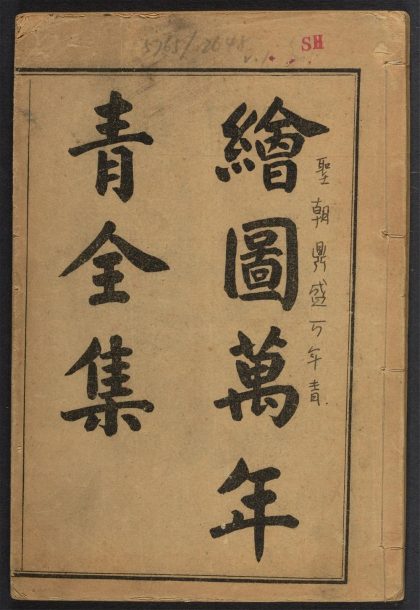 5765/2648
SH
v.1
聖朝鼎盛万年青
繪圖萬年
青全集